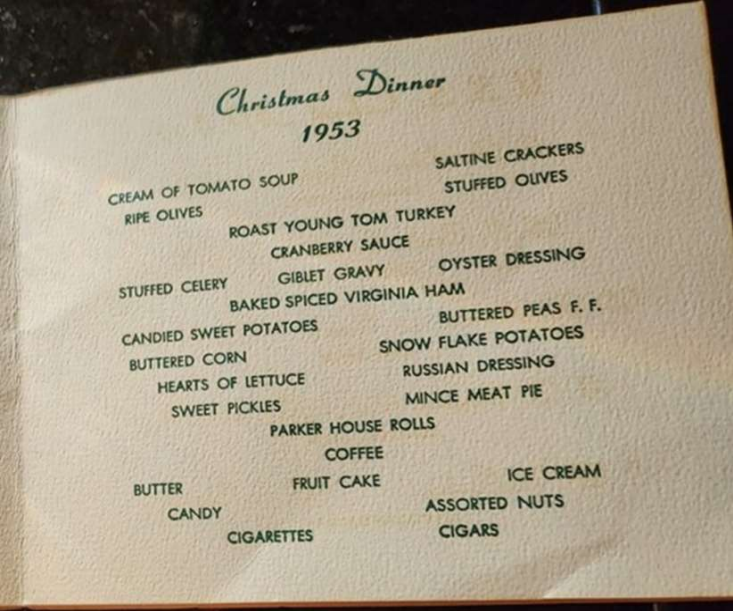 Christmas Dinner
1953
CREAM OF TOMATO SOUP SALTINE CRACKERS
RIPE OLIVES STUFFED OLIVES
ROAST YOUNG TOM TURKEY
CRANBERRY SAUCE
STUFFED CELERY GIBLET GRAVY OYSTER DRESSING
BAKED SPICED VIRGINIA HAM
CANDIED SWEET POTATOES BUTTERED PEAS F. F.
BUTTERED CORN SNOW FLAKE POTATOES
HEARTS OF LETTUCE RUSSIAN DRESSING
SWEET PICKLES MINCE MEAT PIE
PARKER HOUSE ROLLS
COFFEE
BUTTER FRUIT CAKE ICE CREAM
CANDY ASSORTED NUTS
CIGARETTES CIGARS